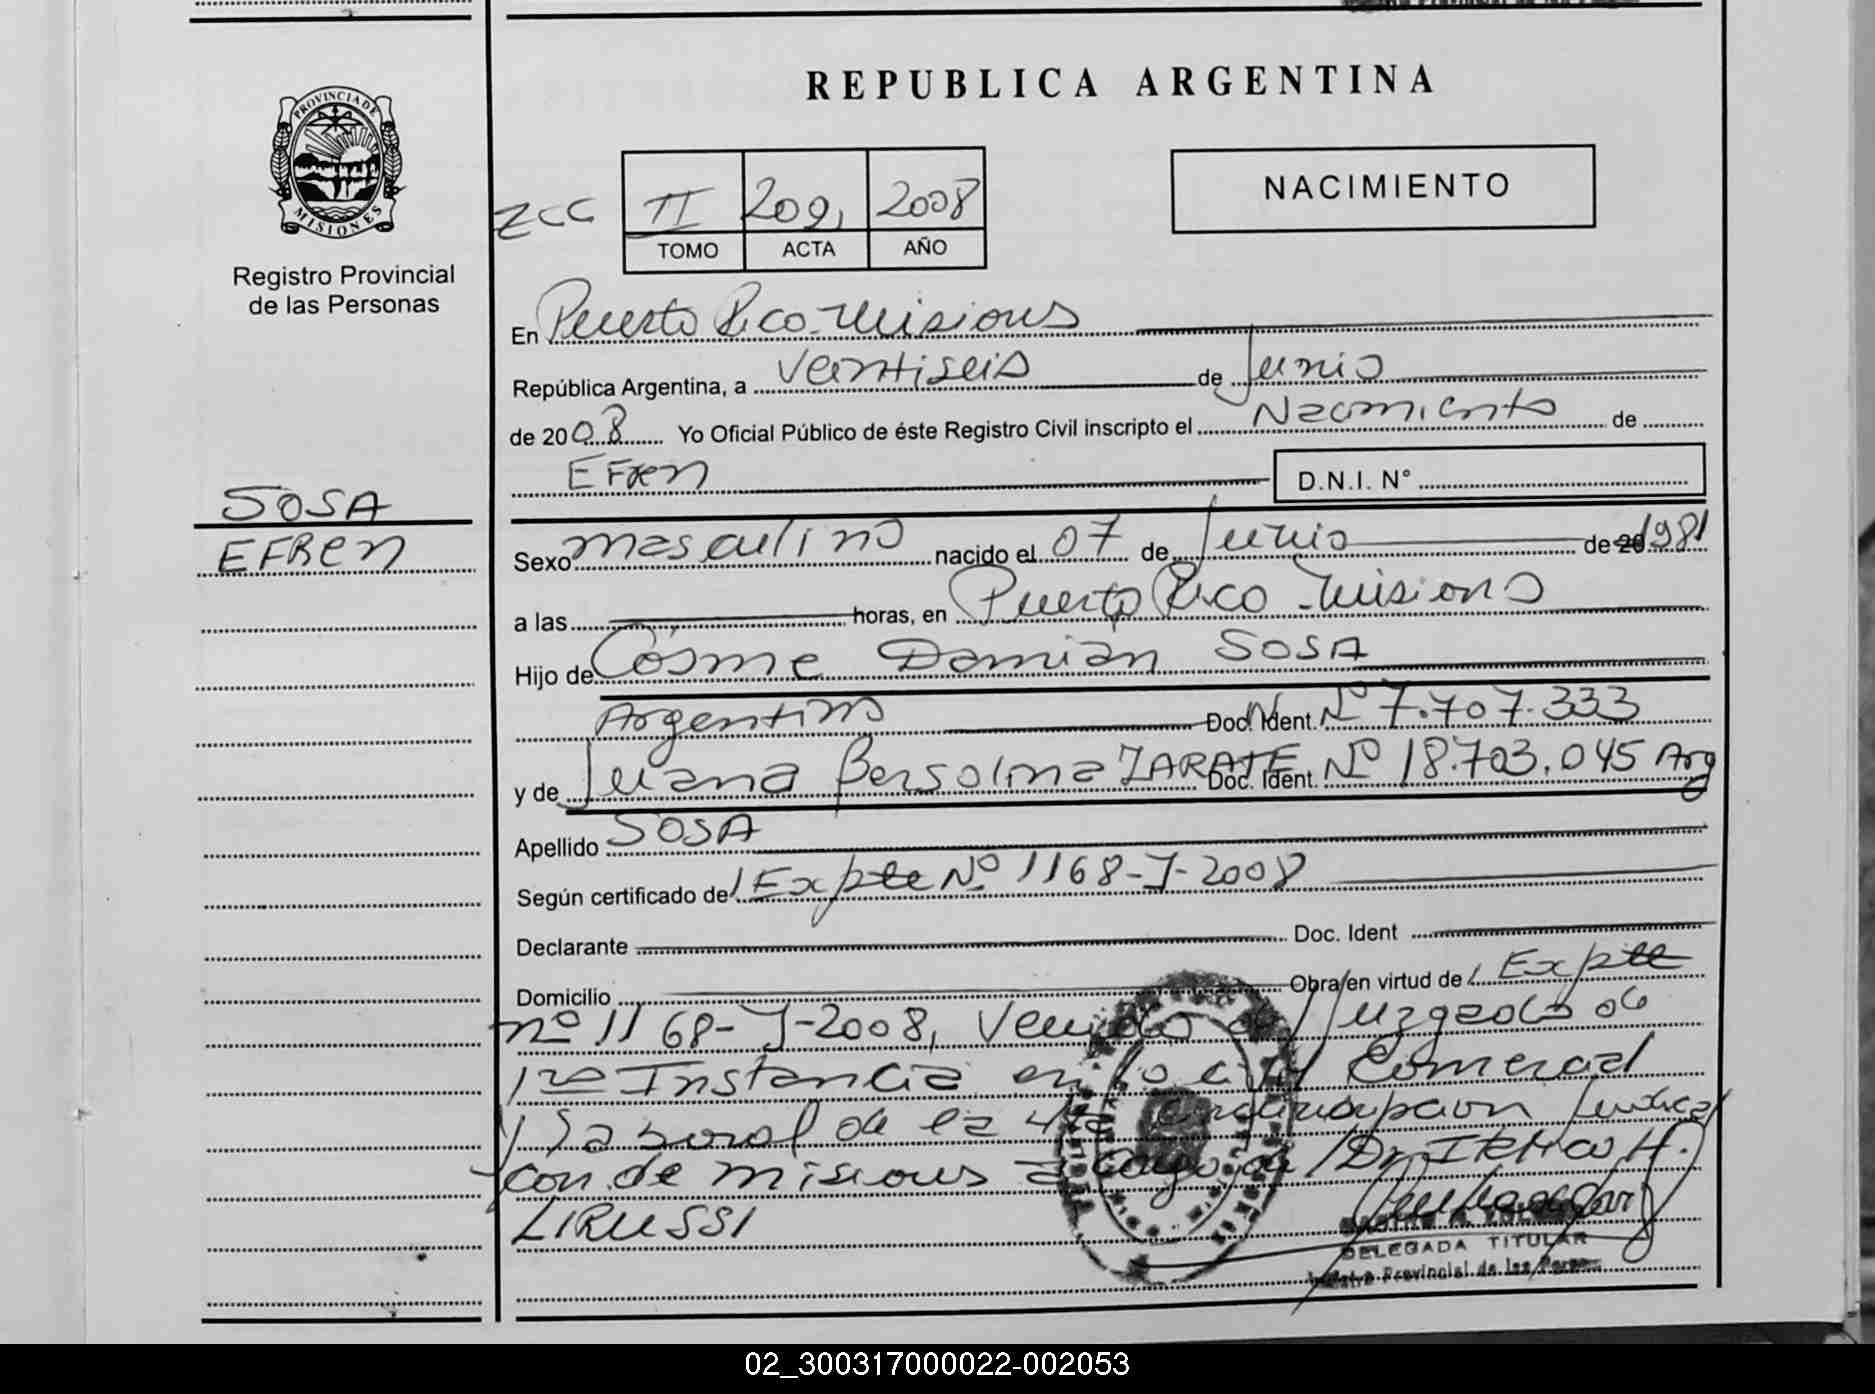 REPUBLICA ARGENTINA
PROVINCIA DE
MISIONES
Registro Provincial
de las Personas
II 209 2008
TOMO ACTA AÑO
NACIMIENTO
En Puerto Rico-Misiones
República Argentina, a veintiseis de Junio
de 2008 Yo Oficial Público de éste Registro Civil inscripto el Nacimiento de
Efren D.N.I. N°
SOSA
EFREN
Sexo masculino nacido el 07 de Junio de 20 1981
a las horas, en Puerto Rico-Misiones
Hijo de Cosme Damián SOSA
Argentino Doc. Ident. Nº 7.707.333
y de Juana Bersolina ZARATE Doc. Ident. Nº 18.703.045 Arg
Apellido SOSA
Según certificado de Expte Nº 1168-J-2008
Declarante Doc. Ident
Domicilio Obra/en virtud de Expte
nº 1168-J-2008, Venido del Juzgado de
1ra Instancia en lo Civil Comercial
y Laboral de la 4ta Circunscripcion Judicial
con de misiones a cargo de Dr. H.
LIRUSSI
DELEGADA TITULAR
Provincial de las
02_300317000022-002053